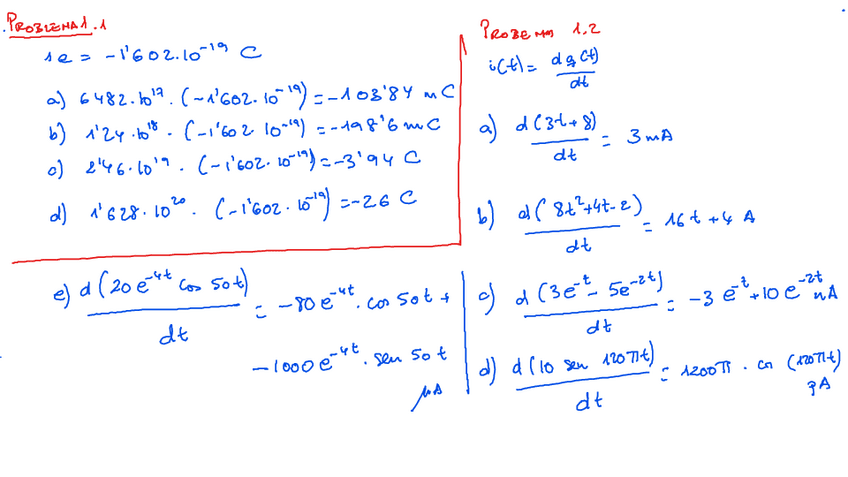 PROBLEMA 1.1
1e = -1'602.10⁻¹⁹ C
a) 6482.10¹⁷ . (-1'602.10⁻¹⁹) = -103'84 mC
b) 1'24.10¹⁸ . (-1'602 10⁻¹⁹) = -198'6 mC
c) 2'46.10¹⁹ . (-1'602.10⁻¹⁹) = -3'94 C
d) 1'628.10²⁰ . (-1'602.10⁻¹⁹) = -26 C
PROBEMA 1.2
i(t) = dq(t)/dt
a) d(3t+8)/dt = 3 mA
b) d(8t²+4t-2)/dt = 16t+4 A
c) d(3e⁻ᵗ - 5e⁻²ᵗ)/dt = -3e⁻ᵗ+10e⁻²ᵗ nA
d) d(10 sen 120πt)/dt = 1200π . cos (120πt)
pA
e) d(20e⁻⁴ᵗ cos 50t)/dt = -80e⁻⁴ᵗ . cos 50t +
-1000e⁻⁴ᵗ . sen 50t
μA